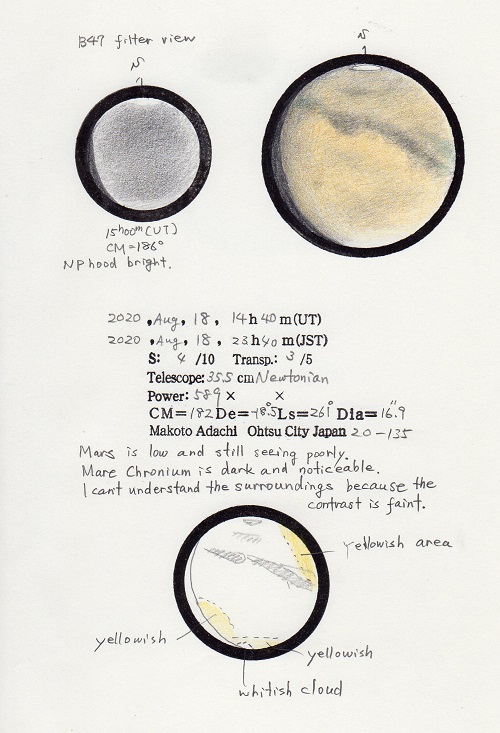 B47 filter view
N
N
15h00m(UT)
CM=186°
NP hood bright.
2020 , Aug, 18 , 14h 40 m(UT)
2020 , Aug, 18 , 23h 40 m(JST)
S: 4 /10 Transp.: 3 /5
Telescope: 355 cm Newtonian
Power: 589 × ×
CM=182 De=-18.5° Ls=261° Dia=16.9"
Makoto Adachi Ohtsu City Japan 20-135
Mars is low and still seeing poorly.
Mare Chronium is dark and noticeable.
I can't understand the surroundings because the
contrast is faint.
yellowish area
yellowish
yellowish
whitish cloud